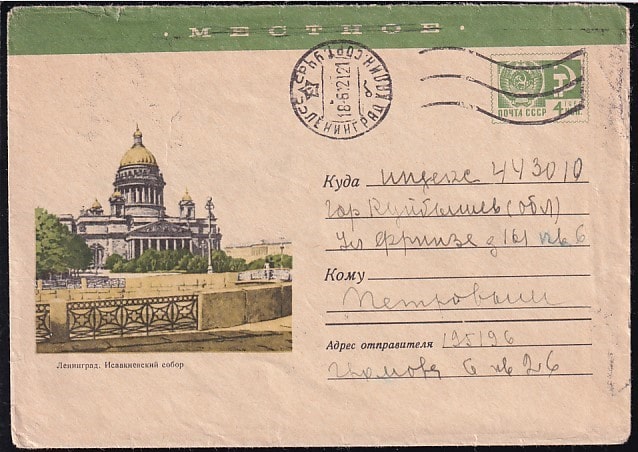 · МЕСТНОЕ ·
ЛЕНИНГРАД
ПОЧТА СССР
4 коп.
Куда индекс 443010
гор Куйбышев (обл)
ул Фрунзе д 161 кв 6
Кому
Петровым
Адрес отправителя 195196
6 кв 26
Ленинград. Исаакиевский собор